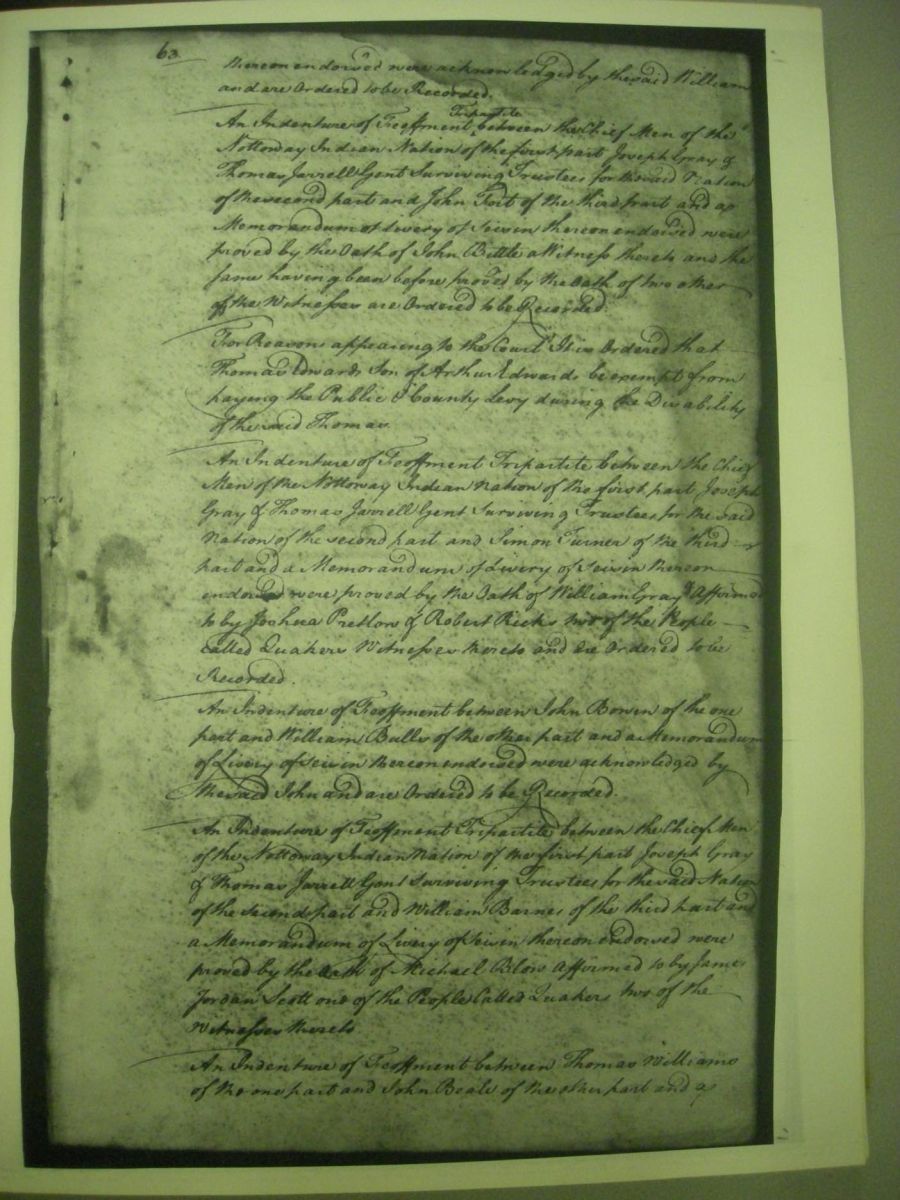 63
thereon endorsed were acknowledged by the said William
and are Ordered to be Recorded.
Tripartite
An Indenture of Feoffment between the Chief Men of the
Nottoway Indian Nation of the first part Joseph Gray &
Thomas Jarrell Gent Surviving Trustees for the said Nation
of the second part and John Fort of the third part and a
Memorandum of Livery of Seisin thereon endorsed were
proved by the Oath of John Bittle a Witness thereto and the
same having been before proved by the Oath of two other
of the Witnesses are Ordered to be Recorded.
For Reasons appearing to the Court It is Ordered that
Thomas Edwards Son of Arthur Edwards be exempt from
paying the Public & County Levy during the Disability
of the said Thomas.
An Indenture of Feoffment Tripartite between the Chief
Men of the Nottoway Indian Nation of the first part Joseph
Gray & Thomas Jarrell Gent Surviving Trustees for the said
Nation of the second part and Simon Turner of the third
part and a Memorandum of Livery of Seisin thereon
endorsed were proved by the Oath of William Gray & Affirmed
to by Joshua Pretlow & Robert Ricks two of the People
called Quakers Witnesses thereto and are Ordered to be
Recorded.
An Indenture of Feoffment between John Bowin of the one
part and William Bulls of the other part and a Memorandum
of Livery of Seisin thereon endorsed were acknowledged by
the said John and are Ordered to be Recorded.
An Indenture of Feoffment Tripartite between the Chief Men
of the Nottoway Indian Nation of the first part Joseph Gray
& Thomas Jarrell Gent Surviving Trustees for the said Nation
of the second part and William Barnes of the third part and
a Memorandum of Livery of Seisin thereon endorsed were
proved by the Oath of Michael Blow Affirmed to by James
Jordan Scott one of the People Called Quakers two of the
Witnesses thereto
An Indenture of Feoffment between Thomas Williams
of the one part and John Beale of the other part and a